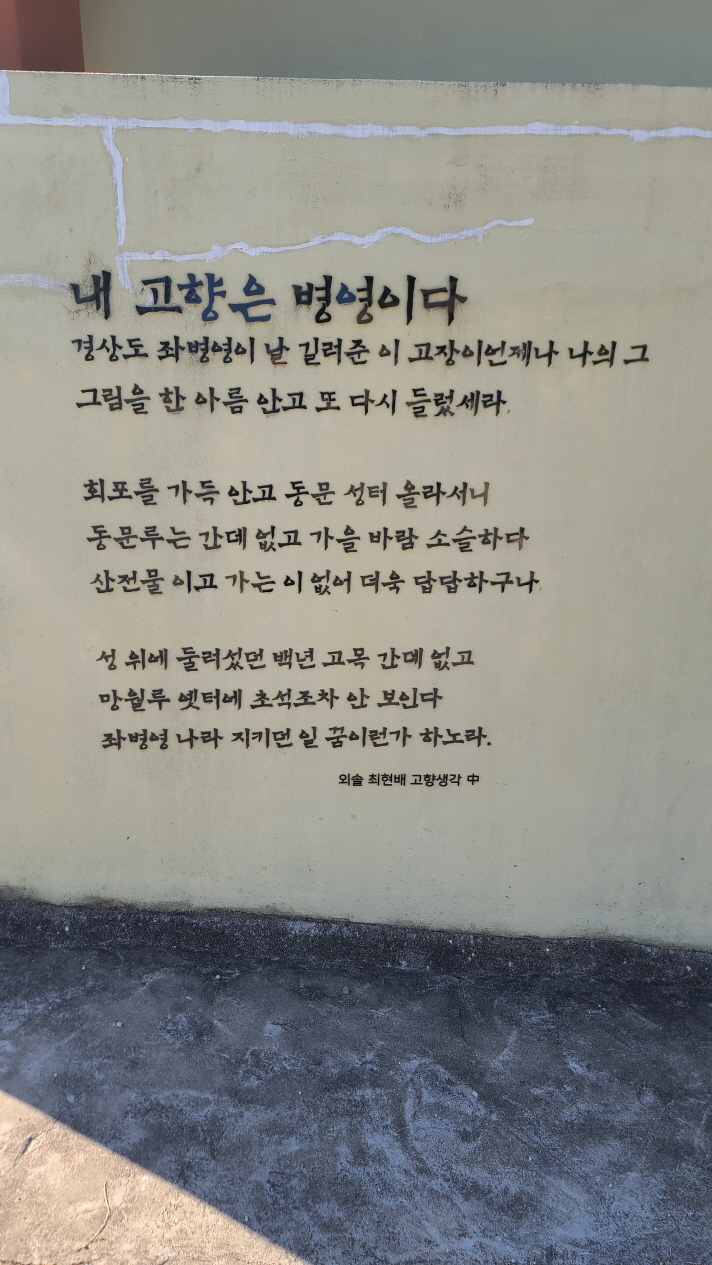 내 고향은 병영이다
경상도 좌병영이 날 길러준 이 고장이언제나 나의 그
그림을 한 아름 안고 또 다시 들렀세라.
회포를 가득 안고 동문 성터 올라서니
동문루는 간데 없고 가을 바람 소슬하다
산전물 이고 가는 이 없어 더욱 답답하구나.
성 위에 둘러섰던 백년 고목 간데 없고
망월루 옛터에 초석조차 안 보인다
좌병영 나라 지키던 일 꿈이런가 하노라.
외솔 최현배 고향생각 中